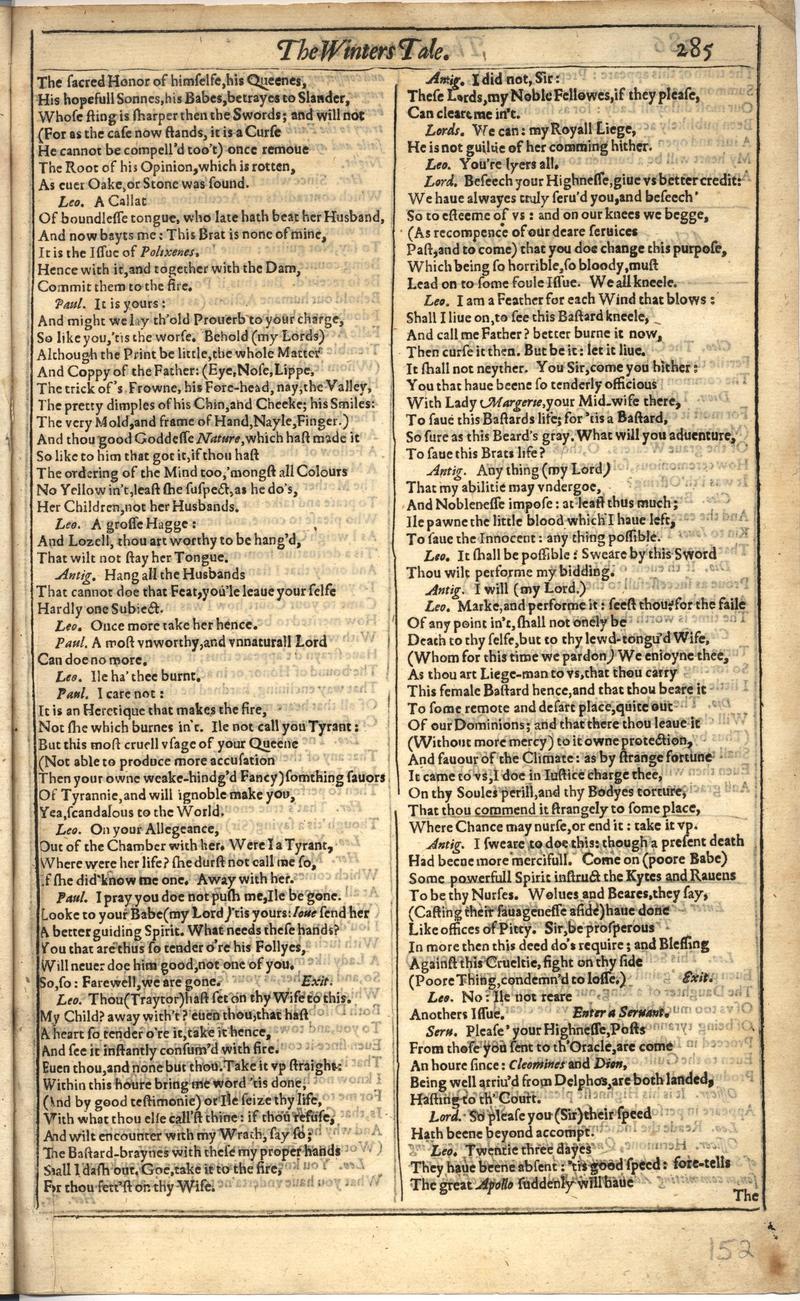 The Winters Tale. 285
The sacred Honor of himselfe, his Queenes,
His hopefull Sonnes, his Babes, betrayes to Slander,
Whose sting is sharper then the Swords; and will not
(For as the case now stands, it is a Curse
He cannot be compell'd too't) once remoue
The Root of his Opinion, which is rotten,
As euer Oake, or Stone was sound.
Leo. A Callat
Of boundlesse tongue, who late hath beat her Husband,
And now bayts me: This Brat is none of mine,
It is the Issue of Polixenes.
Hence with it, and together with the Dam,
Commit them to the fire.
Paul. It is yours:
And might we lay th'old Prouerb to your charge,
So like you, 'tis the worse. Behold (my Lords)
Although the Print be little, the whole Matter
And Coppy of the Father: (Eye, Nose, Lippe,
The trick of's Frowne, his Fore-head, nay, the Valley,
The pretty dimples of his Chin, and Cheeke; his Smiles:
The very Mold, and frame of Hand, Nayle, Finger.)
And thou good Goddesse Nature, which hast made it
So like to him that got it, if thou hast
The ordering of the Mind too, 'mongst all Colours
No Yellow in't, least she suspect, as he do's,
Her Children, not her Husbands.
Leo. A grosse Hagge:
And Lozell, thou art worthy to be hang'd,
That wilt not stay her Tongue.
Antig. Hang all the Husbands
That cannot doe that Feat, you'le leaue your selfe
Hardly one Subiect.
Leo. Once more take her hence.
Paul. A most vnworthy, and vnnaturall Lord
Can doe no more.
Leo. Ile ha' thee burnt.
Paul. I care not:
It is an Heretique that makes the fire,
Not she which burnes in't. Ile not call you Tyrant:
But this most cruell vsage of your Queene
(Not able to produce more accusation
Then your owne weake-hindg'd Fancy) somthing sauors
Of Tyrannie, and will ignoble make you,
Yea, scandalous to the World.
Leo. On your Allegeance,
Out of the Chamber with her. Were I a Tyrant,
Where were her life? she durst not call me so,
If she did know me one. Away with her.
Paul. I pray you doe not push me, Ile be gone.
Looke to your Babe (my Lord) 'tis yours: Ioue send her
A better guiding Spirit. What needs these hands?
You that are thus so tender o're his Follyes,
Will neuer doe him good, not one of you.
So, so: Farewell, we are gone. Exit.
Leo. Thou (Traytor) hast set on thy Wife to this.
My Child? away with't? euen thou, that hast
A heart so tender o're it, take it hence,
And see it instantly consum'd with fire.
Euen thou, and none but thou. Take it vp straight:
Within this houre bring me word 'tis done,
(And by good testimonie) or Ile seize thy life,
With what thou else call'st thine: if thou refuse,
And wilt encounter with my Wrath, say so;
The Bastard-braynes with these my proper hands
Shall I dash out. Goe, take it to the fire,
For thou sett'st on thy Wife.
Antig. I did not, Sir:
These Lords, my Noble Fellowes, if they please,
Can cleare me in't.
Lords. We can: my Royall Liege,
He is not guiltie of her comming hither.
Leo. You're lyers all.
Lord. Beseech your Highnesse, giue vs better credit:
We haue alwayes truly seru'd you, and beseech'
So to esteeme of vs: and on our knees we begge,
(As recompence of our deare seruices
Past, and to come) that you doe change this purpose,
Which being so horrible, so bloody, must
Lead on to some foule Issue. We all kneele.
Leo. I am a Feather for each Wind that blows:
Shall I liue on, to see this Bastard kneele,
And call me Father? better burne it now,
Then curse it then. But be it: let it liue.
It shall not neyther. You Sir, come you hither:
You that haue beene so tenderly officious
With Lady Margerie, your Mid-wife there,
To saue this Bastards life; for 'tis a Bastard,
So sure as this Beard's gray. What will you aduenture,
To saue this Brats life?
Antig. Any thing (my Lord)
That my abilitie may vndergoe,
And Noblenesse impose: at least thus much;
Ile pawne the little blood which I haue left,
To saue the Innocent: any thing possible.
Leo. It shall be possible: Sweare by this Sword
Thou wilt performe my bidding.
Antig. I will (my Lord.)
Leo. Marke, and performe it: seest thou? for the faile
Of any point in't, shall not onely be
Death to thy selfe, but to thy lewd-tongu'd Wife,
(Whom for this time we pardon) We enioyne thee,
As thou art Liege-man to vs, that thou carry
This female Bastard hence, and that thou beare it
To some remote and desart place, quite out
Of our Dominions; and that there thou leaue it
(Without more mercy) to it owne protection,
And fauour of the Climate: as by strange fortune
It came to vs, I doe in Iustice charge thee,
On thy Soules perill, and thy Bodyes torture,
That thou commend it strangely to some place,
Where Chance may nurse, or end it: take it vp.
Antig. I sweare to doe this: though a present death
Had beene more mercifull. Come on (poore Babe)
Some powerfull Spirit instruct the Kytes and Rauens
To be thy Nurses. Wolues and Beares, they say,
(Casting their sauagenesse aside) haue done
Like offices of Pitty. Sir, be prosperous
In more then this deed do's require; and Blessing
Against this Crueltie, fight on thy side
(Poore Thing, condemn'd to losse.) Exit.
Leo. No: Ile not reare
Anothers Issue. Enter a Seruant.
Seru. Please' your Highnesse, Posts
From those you sent to th'Oracle, are come
An houre since: Cleomines and Dion,
Being well arriu'd from Delphos, are both landed,
Hasting to th' Court.
Lord. So please you (Sir) their speed
Hath beene beyond accompt.
Leo. Twentie three dayes
They haue beene absent: 'tis good speed: fore-tells
The great Apollo suddenly will haue
The
152